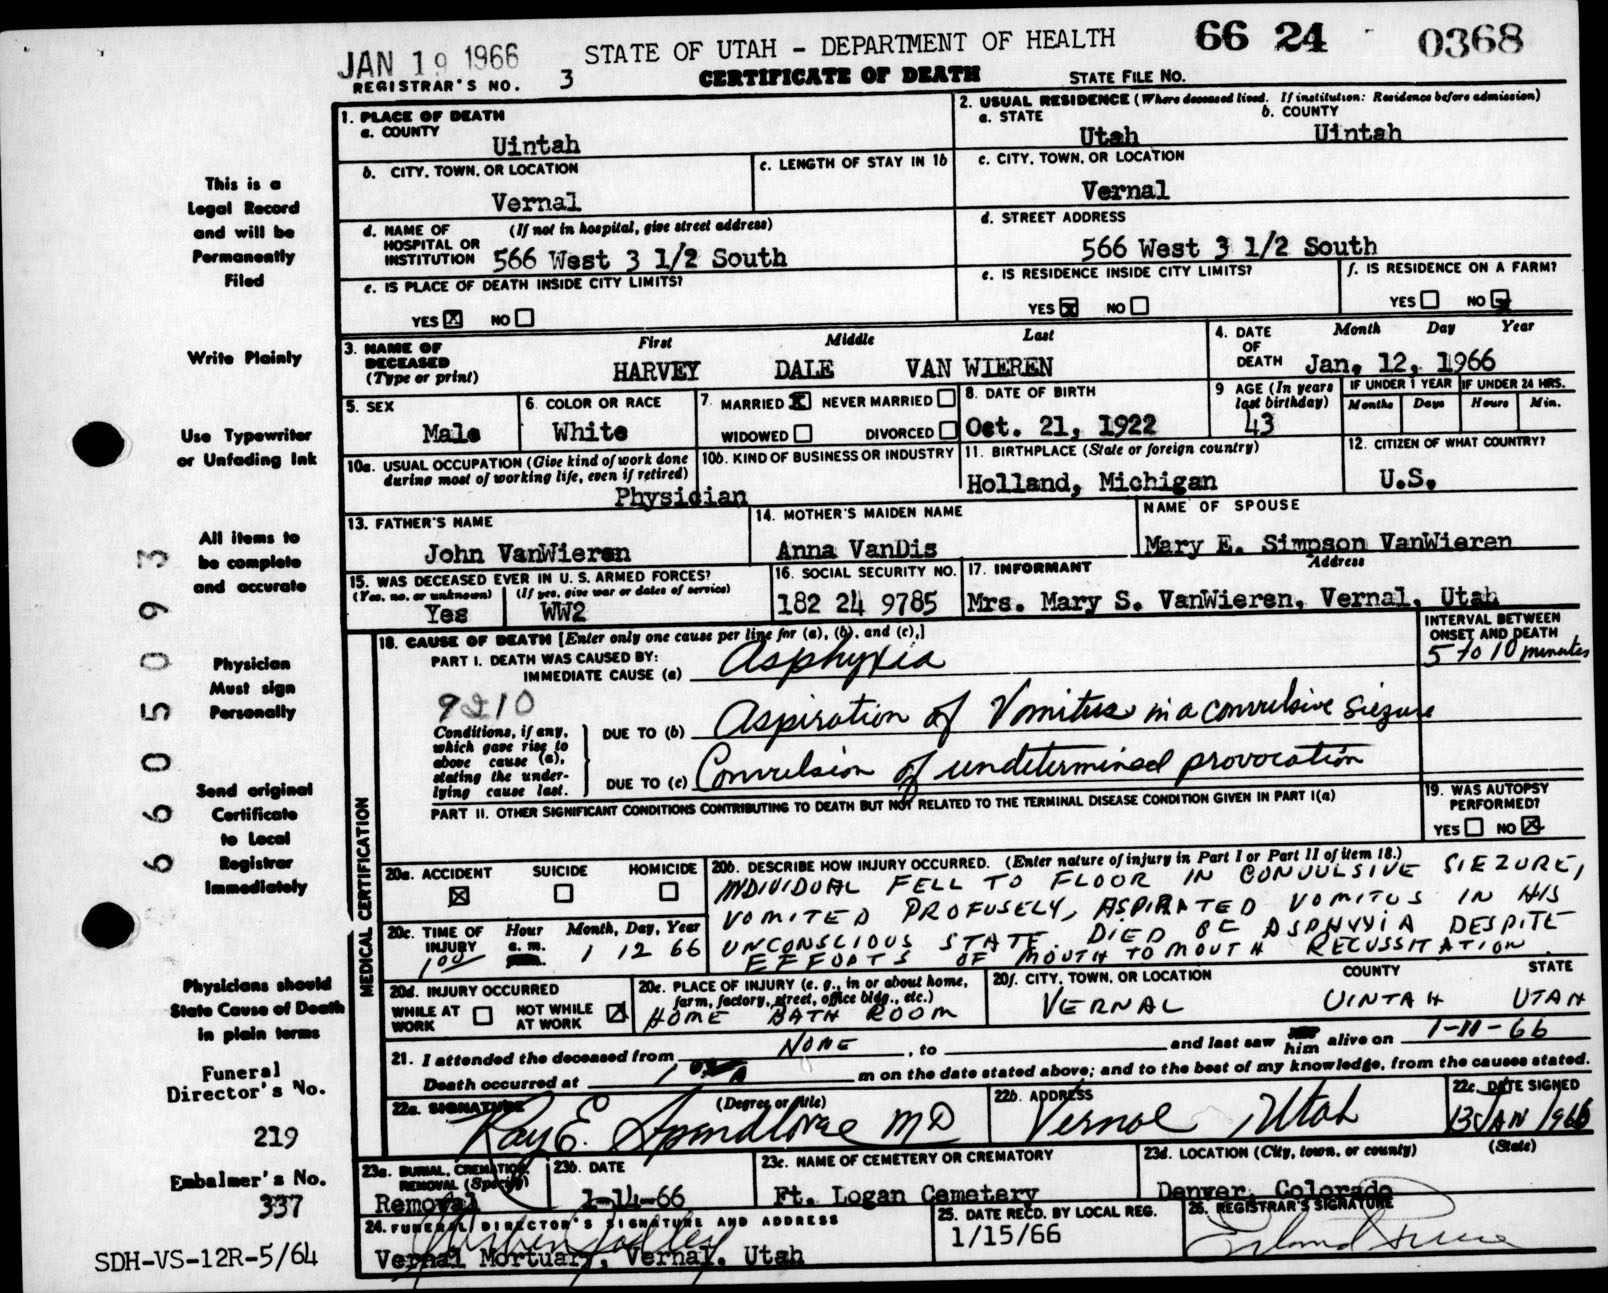 JAN 19 1966
STATE OF UTAH - DEPARTMENT OF HEALTH
66 24 0368
REGISTRAR'S NO. 3
CERTIFICATE OF DEATH
STATE FILE NO.
1. PLACE OF DEATH
a. COUNTY
Uintah
2. USUAL RESIDENCE (Where deceased lived. If institution: Residence before admission)
a. STATE
Utah
b. COUNTY
Uintah
b. CITY, TOWN, OR LOCATION
Vernal
c. LENGTH OF STAY IN 1b
c. CITY, TOWN, OR LOCATION
Vernal
d. NAME OF HOSPITAL OR INSTITUTION
(If not in hospital, give street address)
566 West 3 1/2 South
d. STREET ADDRESS
566 West 3 1/2 South
e. IS PLACE OF DEATH INSIDE CITY LIMITS?
YES X NO
e. IS RESIDENCE INSIDE CITY LIMITS?
YES X NO
f. IS RESIDENCE ON A FARM?
YES NO X
3. NAME OF DECEASED
(Type or print)
First Middle Last
HARVEY DALE VAN WIEREN
4. DATE OF DEATH
Month Day Year
Jan. 12, 1966
5. SEX
Male
6. COLOR OR RACE
White
7. MARRIED X NEVER MARRIED
WIDOWED DIVORCED
8. DATE OF BIRTH
Oct. 21, 1922
9 AGE (In years last birthday)
43
IF UNDER 1 YEAR
Months Days
IF UNDER 24 HRS.
Hours Min.
10a. USUAL OCCUPATION (Give kind of work done during most of working life, even if retired)
Physician
10b. KIND OF BUSINESS OR INDUSTRY
11. BIRTHPLACE (State or foreign country)
Holland, Michigan
12. CITIZEN OF WHAT COUNTRY?
U.S.
13. FATHER'S NAME
John VanWieren
14. MOTHER'S MAIDEN NAME
Anna VanDis
NAME OF SPOUSE
Mary E. Simpson VanWieren
15. WAS DECEASED EVER IN U. S. ARMED FORCES?
(Yes, no, or unknown) (If yes, give war or dates of service)
Yes WW2
16. SOCIAL SECURITY NO.
182 24 9785
17. INFORMANT Address
Mrs. Mary S. VanWieren, Vernal, Utah
MEDICAL CERTIFICATION
18. CAUSE OF DEATH [Enter only one cause per line for (a), (b), and (c).]
PART I. DEATH WAS CAUSED BY:
IMMEDIATE CAUSE (a) Asphyxia
INTERVAL BETWEEN ONSET AND DEATH
5 to 10 minutes
9210
Conditions, if any, which gave rise to above cause (a), stating the underlying cause last.
DUE TO (b) Aspiration of Vomitus in a convulsive siezure
DUE TO (c) Convulsion of undetermined provocation
PART II. OTHER SIGNIFICANT CONDITIONS CONTRIBUTING TO DEATH BUT NOT RELATED TO THE TERMINAL DISEASE CONDITION GIVEN IN PART I(a)
19. WAS AUTOPSY PERFORMED?
YES NO X
20a. ACCIDENT SUICIDE HOMICIDE
X
20b. DESCRIBE HOW INJURY OCCURRED. (Enter nature of injury in Part I or Part II of item 18.)
INDIVIDUAL FELL TO FLOOR IN CONVULSIVE SIEZURE,
VOMITED PROFUSELY, ASPIRATED VOMITUS IN HIS
UNCONSCIOUS STATE. DIED OF ASPHYXIA DESPITE
EFFORTS OF MOUTH TO MOUTH RECUSSITATION
20c. TIME OF INJURY
Hour Month, Day, Year
100 a.m. 1 12 66
20d. INJURY OCCURRED
WHILE AT WORK NOT WHILE AT WORK X
20e. PLACE OF INJURY (e. g., in or about home, farm, factory, street, office bldg., etc.)
HOME BATH ROOM
20f. CITY, TOWN, OR LOCATION COUNTY STATE
VERNAL UINTAH UTAH
21. I attended the deceased from NONE, to and last saw him alive on 1-11-66
Death occurred at 1 m on the date stated above; and to the best of my knowledge, from the causes stated.
22a. SIGNATURE (Degree or title)
Ray E. Spendlove MD
22b. ADDRESS
Vernal Utah
22c. DATE SIGNED
13 JAN 1966
23a. BURIAL, CREMATION, REMOVAL (Specify)
Removal
23b. DATE
1-14-66
23c. NAME OF CEMETERY OR CREMATORY
Ft. Logan Cemetery
23d. LOCATION (City, town, or county) (State)
Denver, Colorado
24. FUNERAL DIRECTOR'S SIGNATURE AND ADDRESS
Vernal Mortuary, Vernal, Utah
25. DATE RECD. BY LOCAL REG.
1/15/66
26. REGISTRAR'S SIGNATURE
This is a
Legal Record
and will be
Permanently
Filed
Write Plainly
Use Typewriter
or Unfading Ink
All items to
be complete
and accurate
Physician
Must sign
Personally
Send original
Certificate
to Local
Registrar
Immediately
Physicians should
State Cause of Death
in plain terms
Funeral
Director's No.
219
Embalmer's No.
337
SDH-VS-12R-5/64
6605093